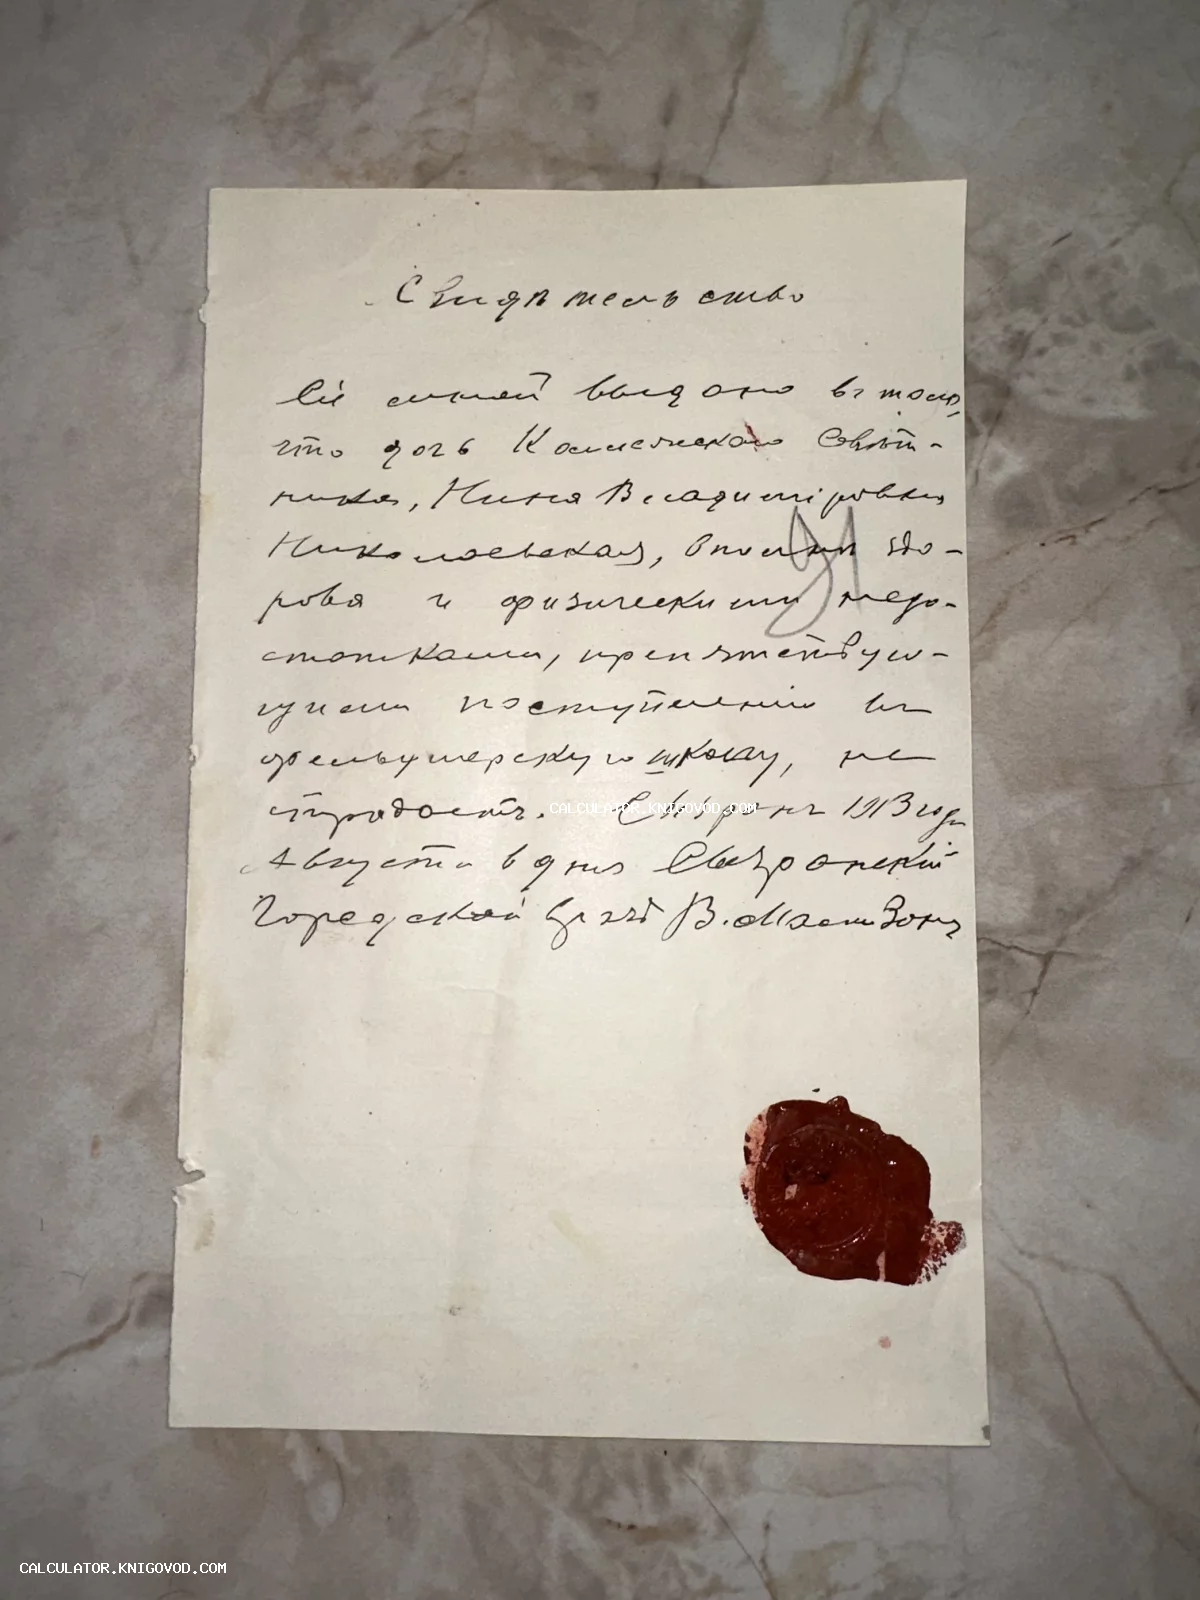 Свидѣтельство
Сіе мной выдано въ томъ,
что дочь Коллежскаго Совѣт-
ника, Нина Владиміровна
Николаевская, вполнѣ здо-
рова и физическими недо-
статками, препятствую-
щими поступленію въ
фельдшерскую школу, не
страдаетъ. 1913 года
Августа дня Сызранскій
Городской врачъ В.
CALCULATOR.KNIGOVOD.COM
CALCULATOR.KNIGOVOD.COM